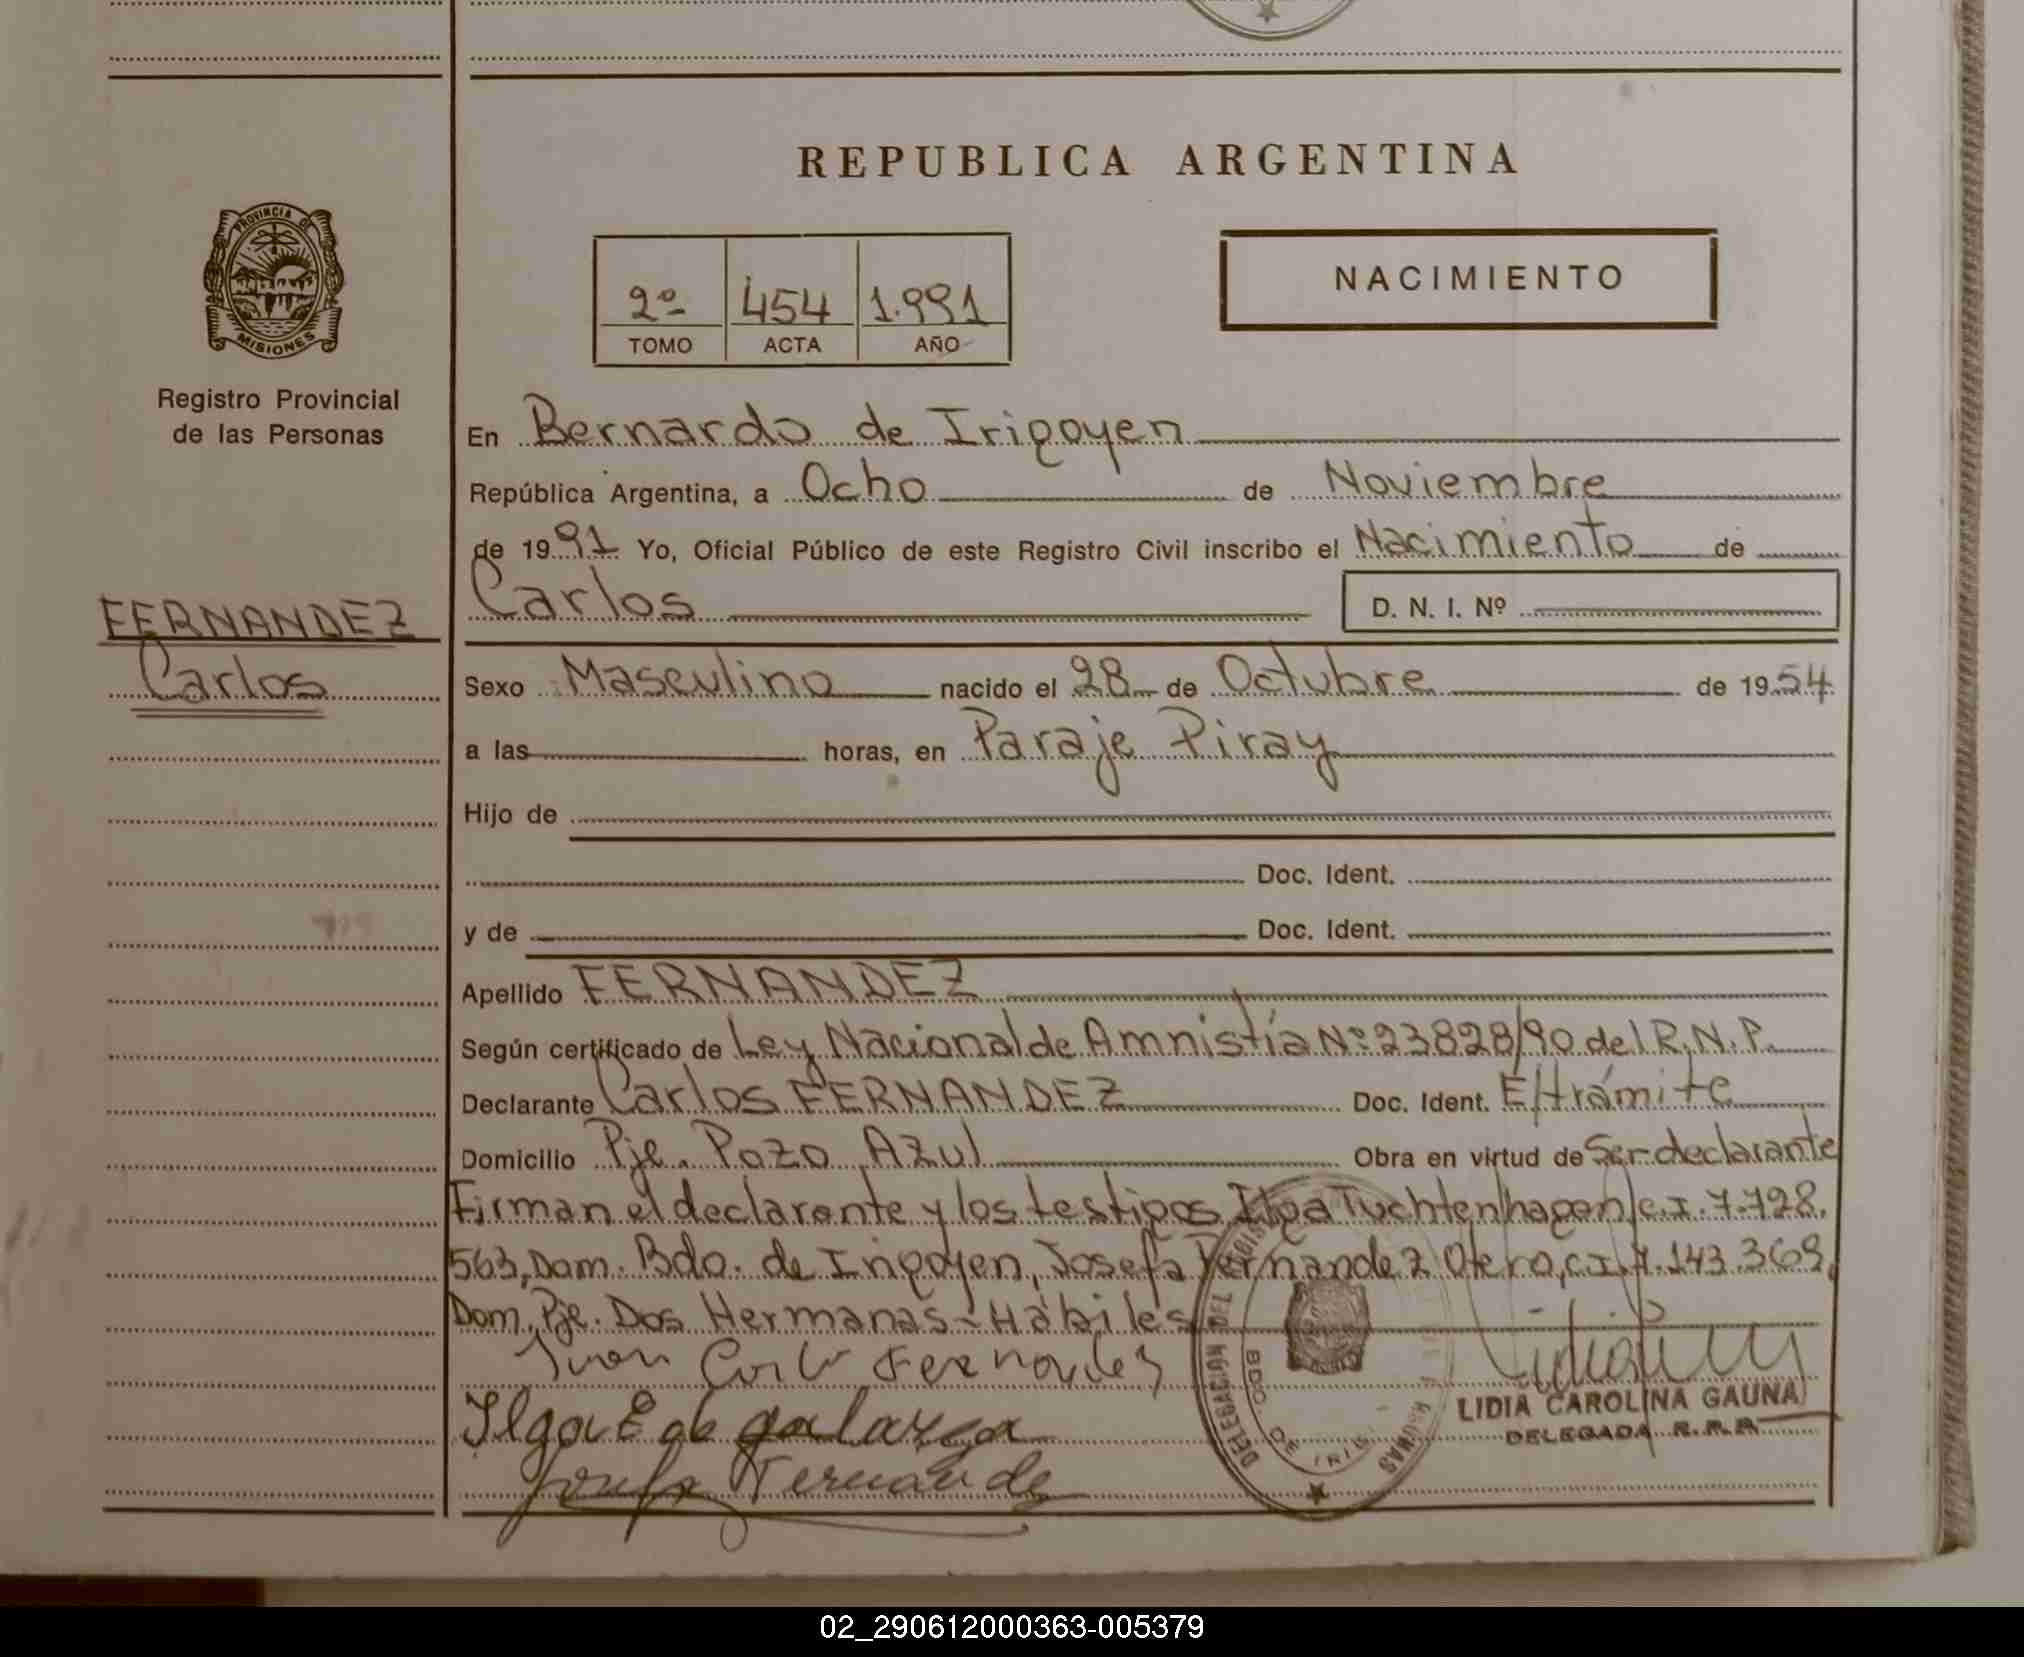 REPUBLICA ARGENTINA
PROVINCIA DE
MISIONES
Registro Provincial
de las Personas
2º 454 1.991
TOMO ACTA AÑO
NACIMIENTO
En Bernardo de Irigoyen
República Argentina, a Ocho de Noviembre
de 1991 Yo, Oficial Público de este Registro Civil inscribo el Nacimiento de
Carlos
D. N. I. Nº
FERNANDEZ
Carlos
Sexo Masculino nacido el 28 de Octubre de 1954
a las horas, en Paraje Piray
Hijo de
Doc. Ident.
y de Doc. Ident.
Apellido FERNANDEZ
Según certificado de Ley Nacional de Amnistía Nº 23828/90 del R.N.P.
Declarante Carlos FERNANDEZ Doc. Ident. E/trámite
Domicilio Pje. Pozo Azul Obra en virtud de Ser declarante
Firman el declarante y los testigos Ilga Tuchtenhagen c.I. 7.728.
563, Dom. Bdo. de Irigoyen, Josefa Fernandez Otero, c.I. 7.143.369,
Dom. Pje. Dos Hermanas - Hábiles
Juan Carlo Fernandez
Ilga E de galarza
Josefa Fernande
DELEGACION DEL
BDO. DE IRIG
LIDIA CAROLINA GAUNA
DELEGADA R.P.P.
02_290612000363-005379